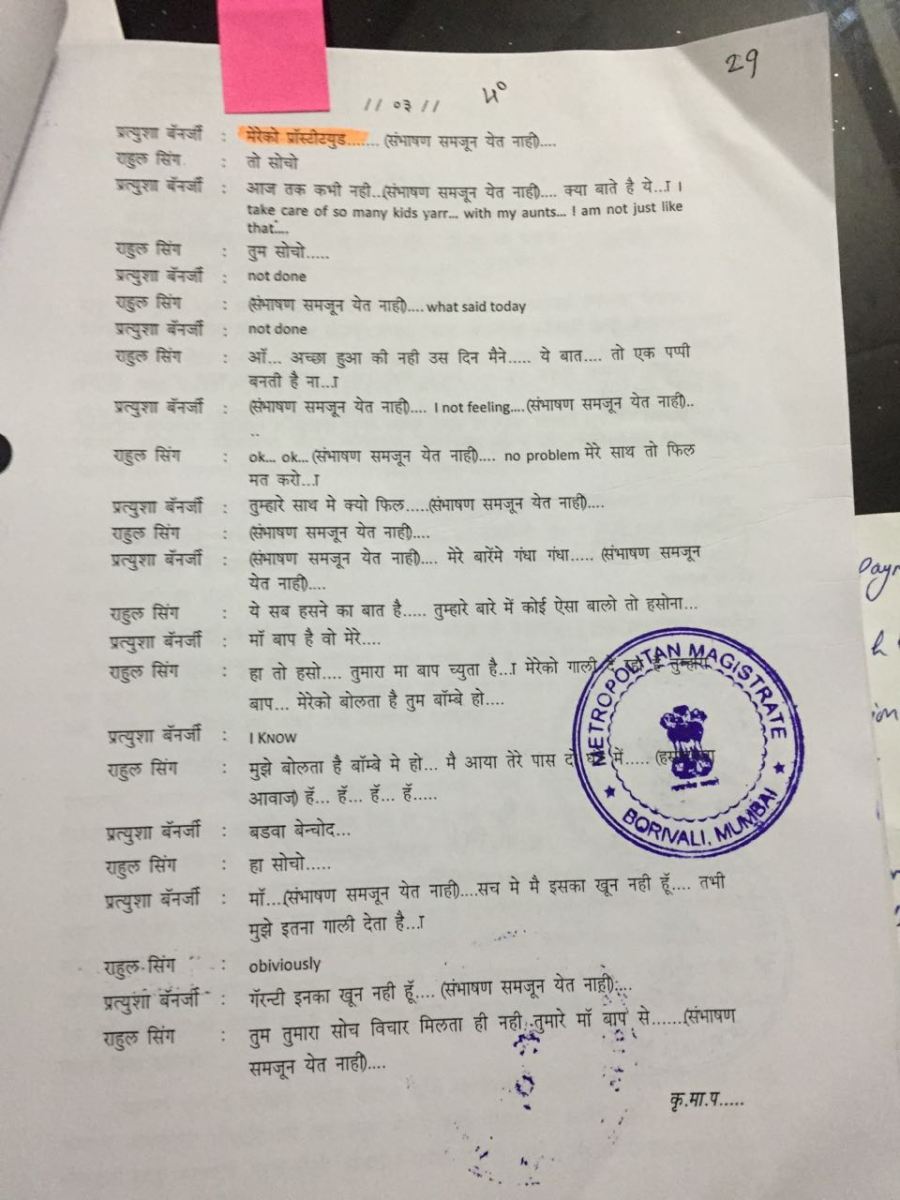 29
४०
// ०३ //
प्रत्युशा बॅनर्जी : मेरेको प्रॉस्टीटयुड....... (संभाषण समजून येत नाही)....
राहुल सिंग : तो सोचो
प्रत्युशा बॅनर्जी : आज तक कभी नही..(संभाषण समजून येत नाही).... क्या बाते है ये...I I
take care of so many kids yarr... with my aunts... I am not just like
that....
राहुल सिंग : तुम सोचो.....
प्रत्युशा बॅनर्जी : not done
राहुल सिंग : (संभाषण समजून येत नाही).... what said today
प्रत्युशा बॅनर्जी : not done
राहुल सिंग : ऑ... अच्छा हुआ की नही उस दिन मैने..... ये बात.... तो एक पप्पी
बनती है ना...I
प्रत्युशा बॅनर्जी : (संभाषण समजून येत नाही).... I not feeling....(संभाषण समजून येत नाही)..
..
राहुल सिंग : ok... ok... (संभाषण समजून येत नाही).... no problem मेरे साथ तो फिल
मत करो...I
प्रत्युशा बॅनर्जी : तुम्हारे साथ मे क्यो फिल.....(संभाषण समजून येत नाही)....
राहुल सिंग : (संभाषण समजून येत नाही)....
प्रत्युशा बॅनर्जी : (संभाषण समजून येत नाही).... मेरे बारेंमे गंधा गंधा..... (संभाषण समजून
येत नाही)....
राहुल सिंग : ये सब हसने का बात है..... तुम्हारे बारे में कोई ऐसा बालो तो हसोना...
प्रत्युशा बॅनर्जी : मॉ बाप है वो मेरे....
राहुल सिंग : हा तो हसो.... तुमारा मा बाप च्युता है...I मेरेको गाली दे रहा है तुम्हारा
बाप... मेरेको बोलता है तुम बॉम्बे हो....
प्रत्युशा बॅनर्जी : I KNOW
राहुल सिंग : मुझे बोलता है बॉम्बे मे हो... मै आया तेरे पास दो में.....
आवाज) हॅं... हॅं... हॅं... हॅं.....
प्रत्युशा बॅनर्जी : बडवा बेन्चोद...
राहुल सिंग : हा सोचो.....
प्रत्युशा बॅनर्जी : मॉ...(संभाषण समजून येत नाही)....सच मे मै इसका खून नही हूँ.... तभी
मुझे इतना गाली देता है...I
राहुल सिंग : obiviously
प्रत्युशा बॅनर्जी : गॅरन्टी इनका खून नही हूँ.... (संभाषण समजून येत नाही)....
राहुल सिंग : तुम तुमारा सोच विचार मिलता ही नही तुमारे मॉ बाप से.......(संभाषण
समजून येत नाही)....
कृ.मा.प.....
METROPOLITAN MAGISTRATE
BORIVALI, MUMBAI